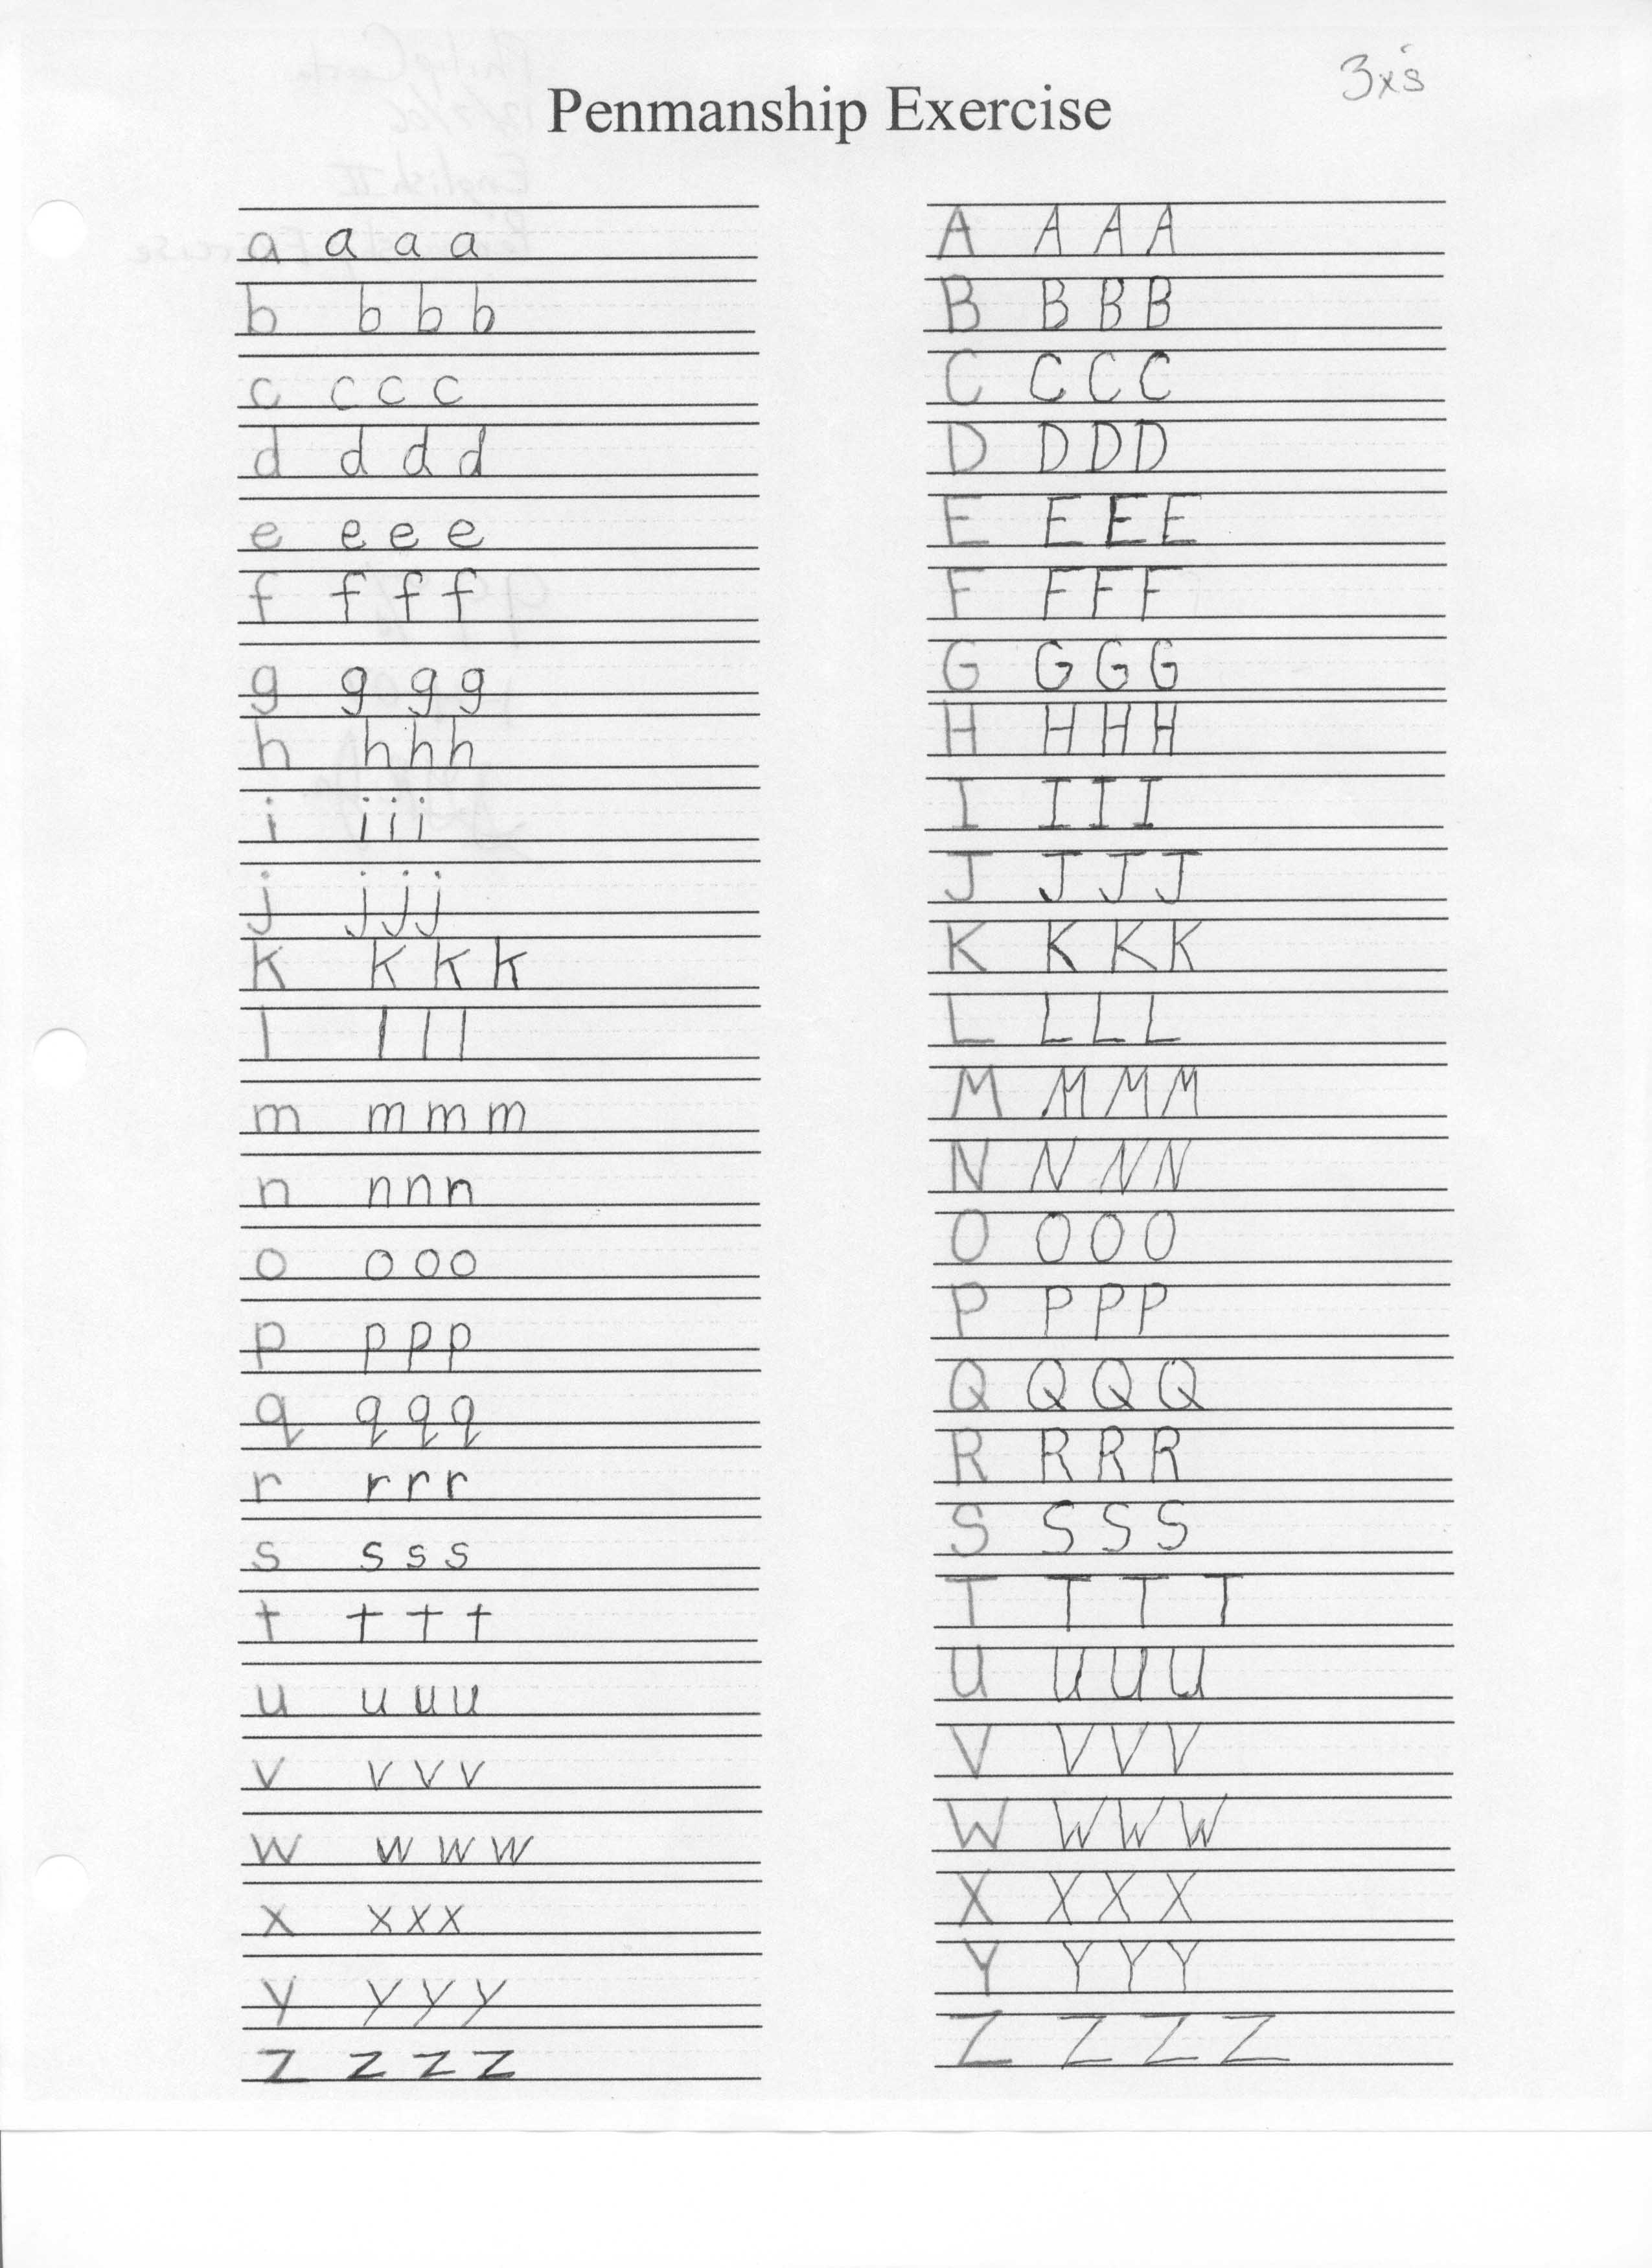 3x's
Penmanship Exercise
a a a a
b b b b
c c c c
d d d d
e e e e
f f f f
g g g g
h h h h
i i i i
j j j j
k k k k
l l l l
m m m m
n n n n
o o o o
p p p p
q q q q
r r r r
s s s s
t t t t
u u u u
v v v v
w w w w
x x x x
y y y y
z z z z
A A A A
B B B B
C C C C
D D D D
E E E E
F F F F
G G G G
H H H H
I I I I
J J J J
K K K K
L L L L
M M M M
N N N N
O O O O
P P P P
Q Q Q Q
R R R R
S S S S
T T T T
U U U U
V V V V
W W W W
X X X X
Y Y Y Y
Z Z Z Z